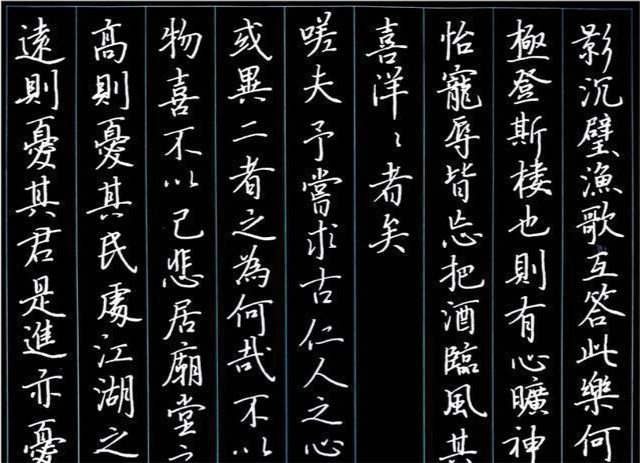 影沉璧漁歌互答此樂何
極登斯樓也則有心曠神
怡寵辱皆忘把酒臨風其
喜洋〻者矣
嗟夫予嘗求古仁人之心
或異二者之為何哉不以
物喜不以己悲居廟堂之
高則憂其民處江湖之
遠則憂其君是進亦憂